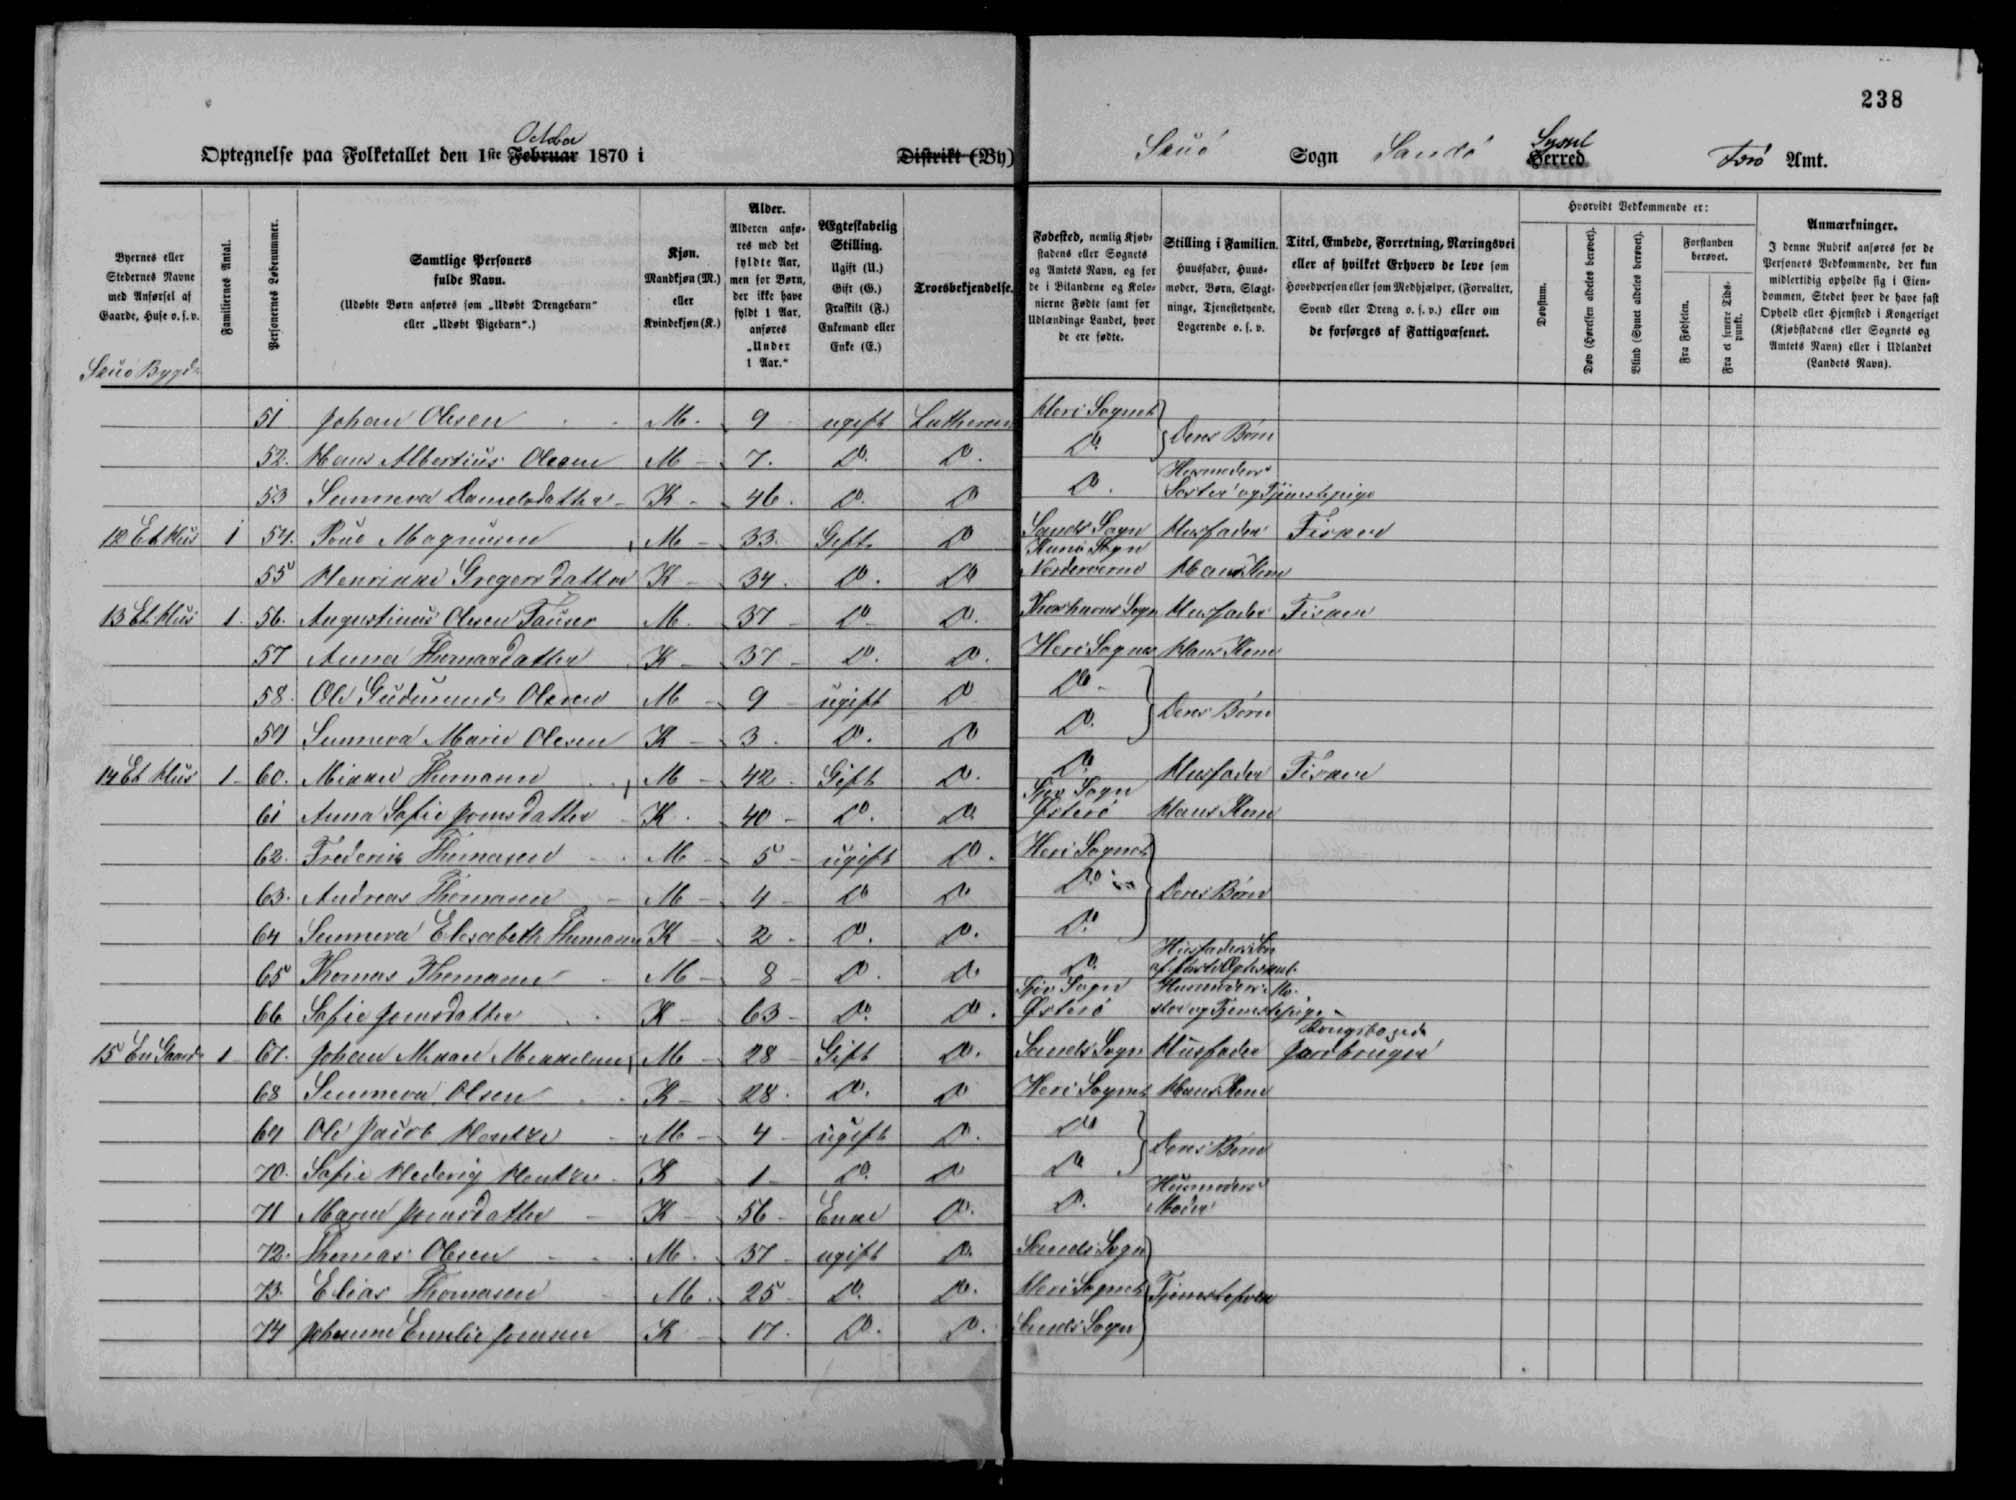 238
October
Optegnelse paa Folketallet den 1ste Februar 1870 i Distrikt (By) Skuø Sogn Sandø Syssel Herred Færø Amt.
Byernes eller Stedernes Navne med Anførsel af Gaarde, Huse o.s.v.
Familiernes Antal.
Personernes Løbenummer.
Samtlige Personers fulde Navn.
(Udøbte Børn anføres som „Udøbt Drengebarn“ eller „Udøbt Pigebarn“.)
Kjøn.
Mandkjøn (M.) eller Kvindekjøn (K.)
Alder.
Alderen anføres med det fyldte Aar, men for Børn, der ikke have fyldt 1 Aar, anføres „Under 1 Aar.“
Ægteskabelig Stilling.
Ugift (U.) Gift (G.) Fraskilt (F.) Enkemand eller Enke (E.)
Troesbekjendelse.
Fødested, nemlig Kjøbstadens eller Sognets og Amtets Navn, og for de i Bilandene og Kolonierne Fødte samt for Udlændinge Landet, hvor de ere fødte.
Stilling i Familien.
Huusfader, Huusmoder, Børn, Slægtninge, Tjenestetyende, Logerende o.s.v.
Titel, Embede, Forretning, Næringsvei eller af hvilket Erhverv de leve som Hovedperson eller som Medhjælper, (Forvalter, Svend eller Dreng o.s.v.) eller om de forsørges af Fattigvæsenet.
Hvorvidt Vedkommende er:
Døvstum.
Døv (Hørelsen aldeles berøvet).
Blind (Synet aldeles berøvet).
Forstanden berøvet.
Fra Fødselen.
Fra et senere Tidspunkt.
Anmærkninger.
I denne Rubrik anføres for de Personers Vedkommende, der kun midlertidig opholde sig i Eiendommen, Stedet hvor de have fast Ophold eller Hjemsted i Kongeriget (Kjøbstadens eller Sognets og Amtets Navn) eller i Udlandet (Landets Navn).
Skuø Bygd
51 Johan Olesen M. 9 ugift Lutheran Heri Sognet
52. Hans Albertius Olesen M 7. Do. Do. Do. Deres Børn
53 Sunneva Danielsdatter K 46. Do. Do Do. Husmoders Søster og Tjenestepige
12 Et Hus 1 54. Poul Magnusen M 33. Gift Do Sands Sogn Husfader Fisker
55 Henrikke Gregersdatter K 34. Do. Do Kunø Sogn Norderøerne Hans Kone
13 Et Hus 1. 56. Augustinus Olesen M. 37 Do Do. Thorshavns Sogn Husfader Fisker
57 Anna Thomasdatter K 37 Do. Do. Heri Sognet Hans Kone
58. Ole Gudmund Olesen M 9 ugift Do Do
59 Sunneva Marie Olesen K 3. Do. Do Do. Deres Børn
14 Et Hus 1 60. Mikkel Thomasen M 42 Gift Do. Do. Husfader Fisker
61 Anna Sofie Joensdatter K. 40 Do. Do. Sogn Østerø Hans Kone
62. Frederik Thomasen M 5 ugift Do. Heri Sognet
63. Andreas Thomasen M 4 Do Do Do. Deres Børn
64 Sunneva Elisabeth Thomasen K 2 Do. Do. Do.
65 Thomas Thomasen M 8 Do. Do Do. Husfaders Søn af første Ægteskab.
66 Sofie Joensdatter K 63 Do. Do. Sogn Østerø Husmoders Moster og Tjenestepige
15 En Gaard 1 67. Johan Mikkel Mikkelsen M 28 Gift Do. Sands Sogn Husfader Kongsbonde Jordbruger
68 Sunneva Olsen K 28. Do. Do Heri Sognet Hans Kone
69 Ole Jacob Hentze M 4 ugift Do. Do
70. Sofie Hedevig Hentze K 1 Do. Do Do Deres Børn
71 Maren Joensdatter K 56 Enke Do. Do. Husmoders Moder
72. Thomas Olesen M. 37 ugift Do. Sands Sogn
73. Elias Thomasen M. 25 Do. Do. Heri Sognet Tjenestefolk
74 Johanne Emilie Joensen K 17. Do. Do. Sands Sogn